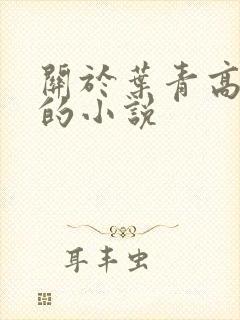 關於葉青高
的小說
耳丰虫